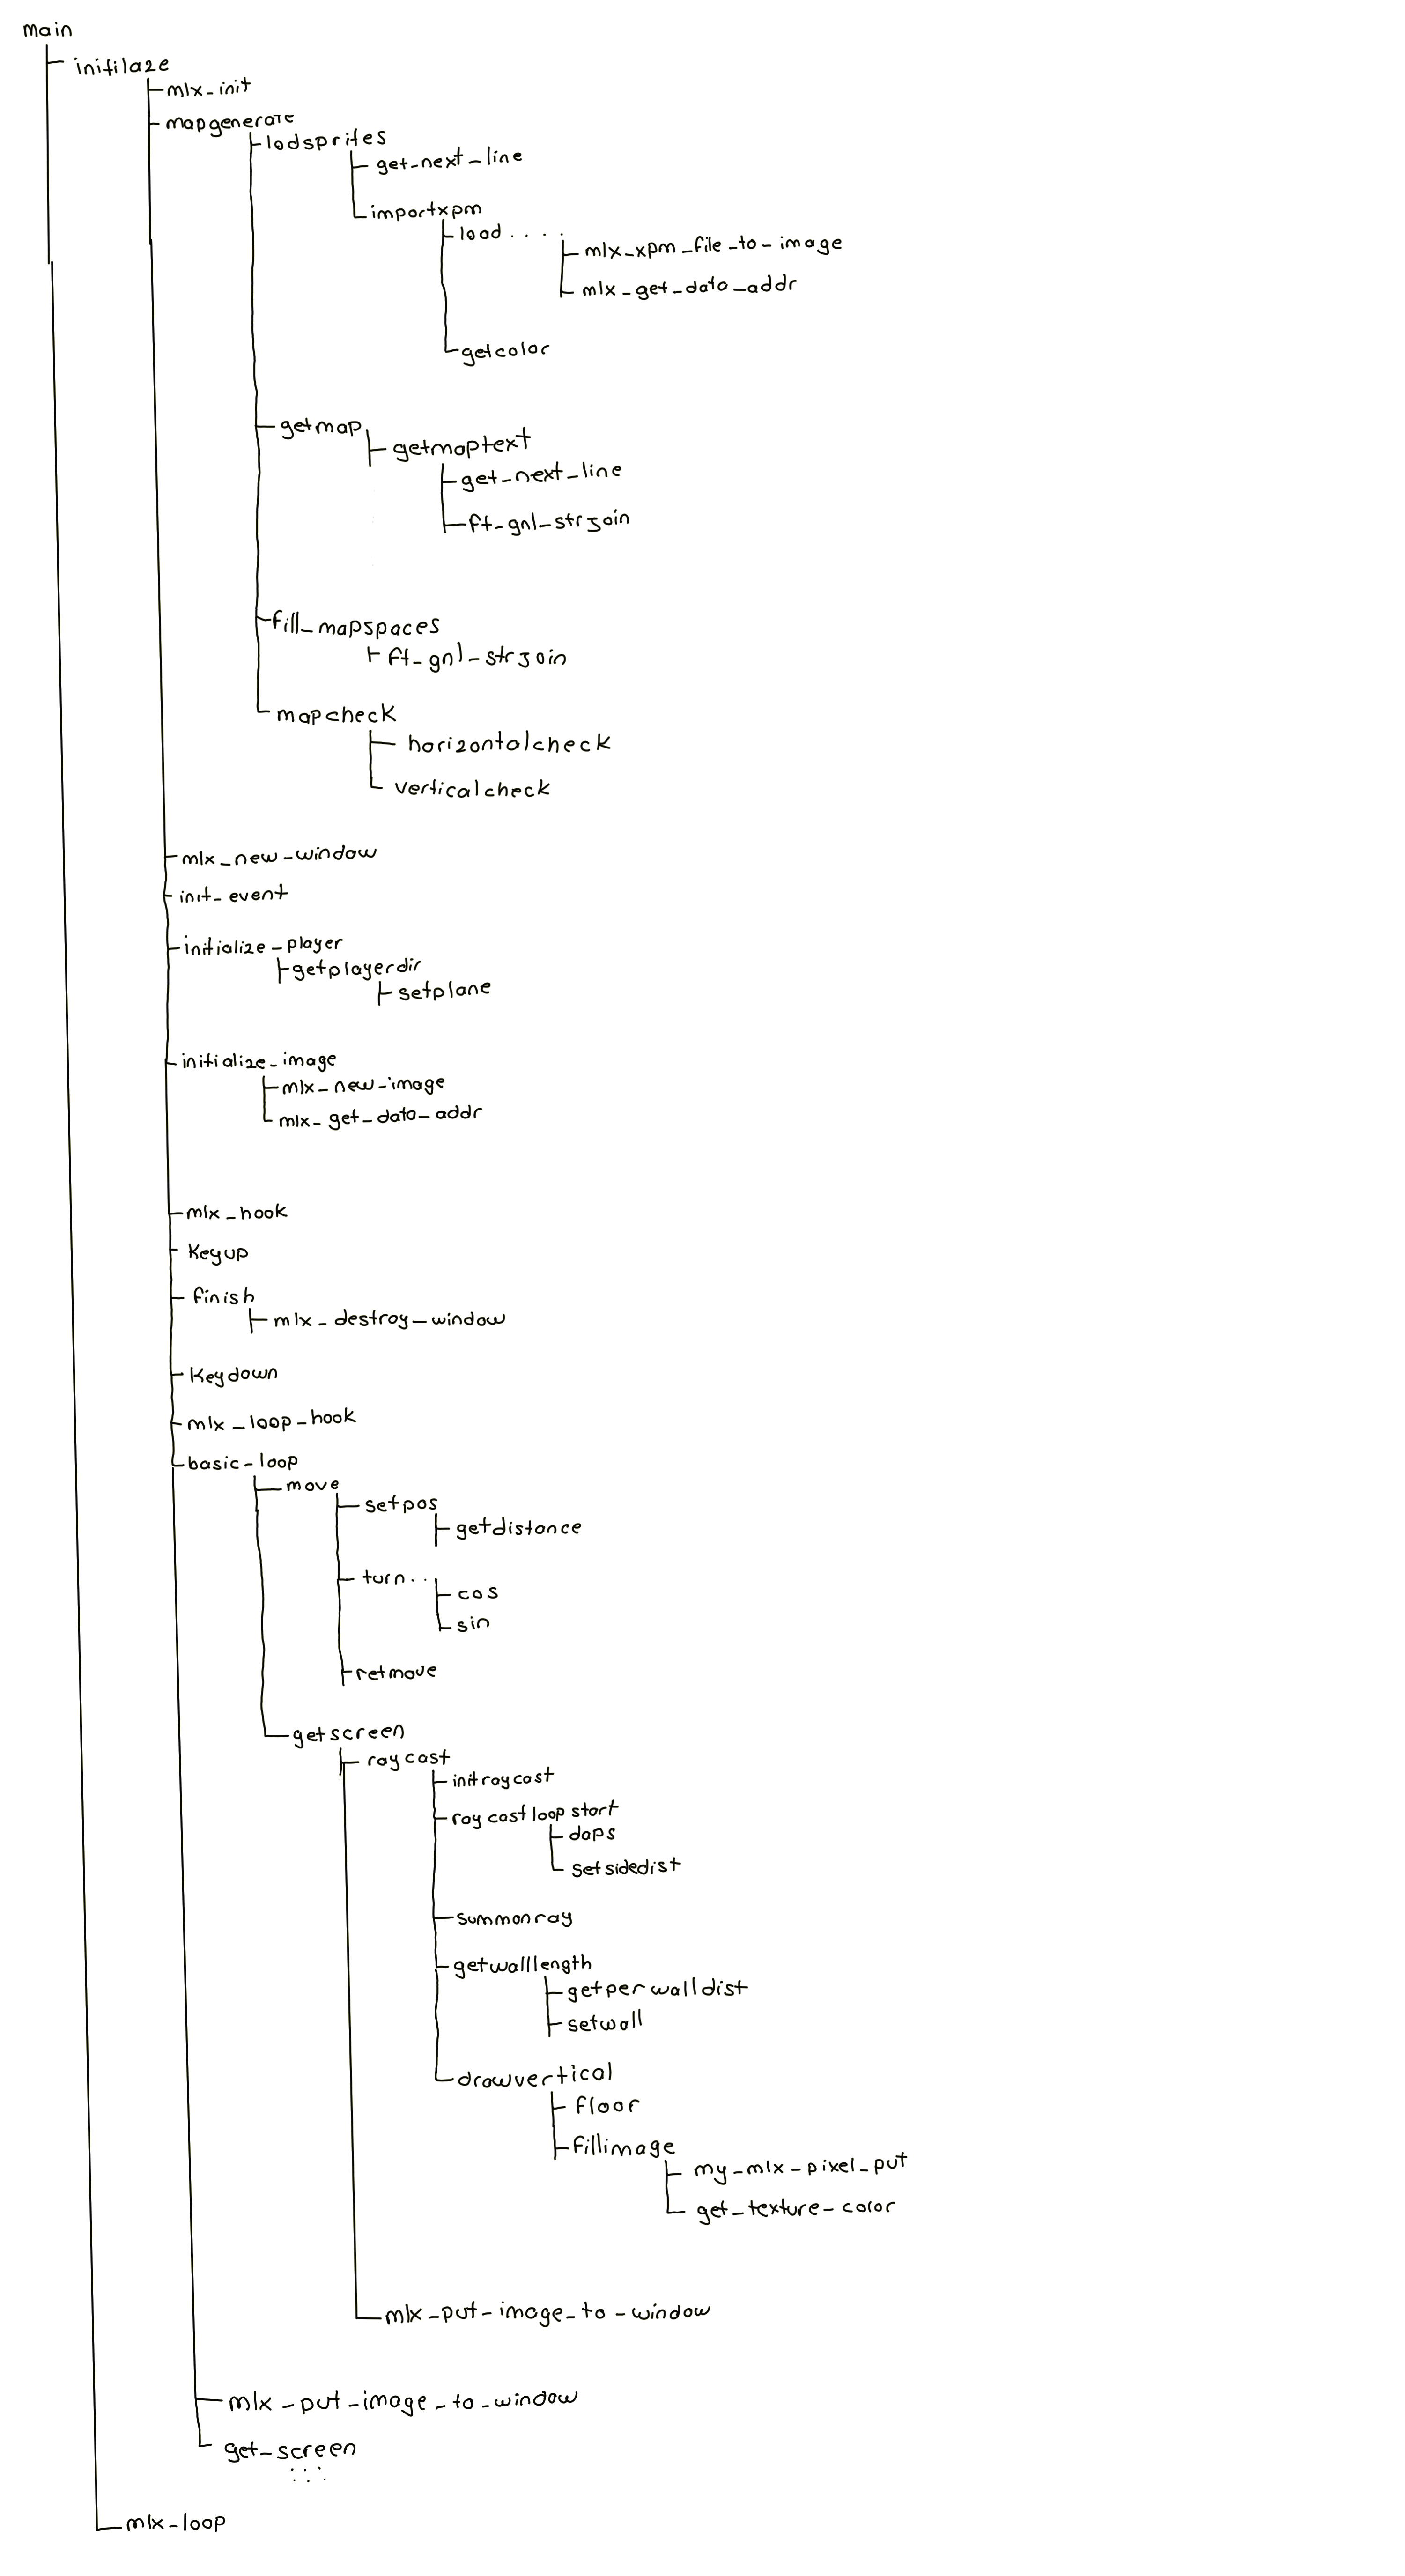 main
initilaze
mlx_init
mapgenerate
lodsprites
get_next_line
importxpm
load . . . .
mlx_xpm_file_to_image
mlx_get_data_addr
getcolor
getmap
getmaptext
get_next_line
ft_gnl_strjoin
fill_mapspaces
ft_gnl_strjoin
mapcheck
horizontalcheck
verticalcheck
mlx_new_window
init_event
initialize_player
getplayerdir
setplane
initialize_image
mlx_new_image
mlx_get_data_addr
mlx_hook
Keyup
finish
mlx_destroy_window
Keydown
mlx_loop_hook
basic_loop
move
setpos
getdistance
turn . .
cos
sin
retmove
getscreen
raycast
initraycast
raycastloopstart
daps
setsidedist
summonray
getwalllength
getperwalldist
setwall
drawvertical
floor
fillimage
my_mlx_pixel_put
get_texture_color
mlx_put_image_to_window
mlx_put_image_to_window
get_screen
mlx_loop